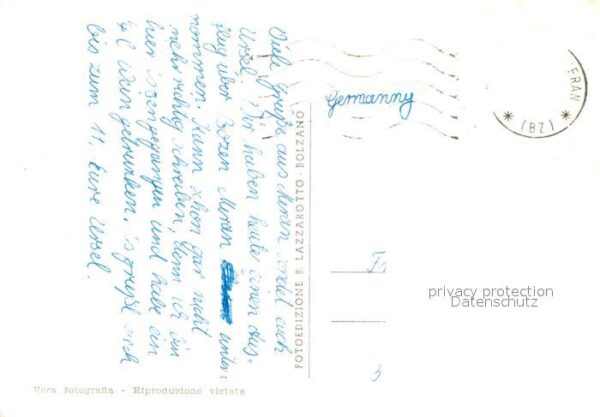 Viele Grüße aus Meran sendet euch
Ursel. Wir haben heute einen Aus-
flug über Bozen Meran unter
nommen. Kann schon gar nicht
mehr richtig schreiben, denn ich bin
hier Essen gegangen und habe ein
Wein getrunken. Es grüßt euch
bis zum 11. Eure Ursel.
FOTOEDIZIONE B. LAZZAROTTO - BOLZANO
Germanny
FRAN
* (BZ) *
privacy protection
Datenschutz
3
Vera fotografia - Riproduzione vietata